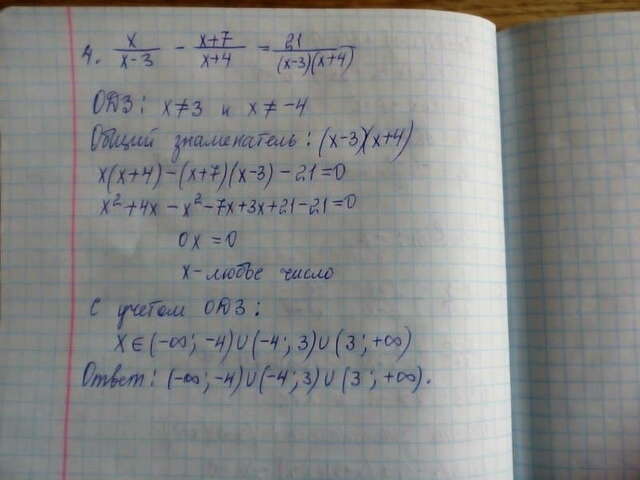 4. x/(x-3) - (x+7)/(x+4) = 21/((x-3)(x+4))
ОДЗ: x≠3 и x≠-4
Общий знаменатель: (x-3)(x+4)
x(x+4)-(x+7)(x-3)-21=0
x²+4x-x²-7x+3x+21-21=0
0x=0
x-любое число
С учетом ОДЗ:
X∈(-∞;-4)∪(-4;3)∪(3;+∞)
Ответ: (-∞;-4)∪(-4;3)∪(3;+∞).